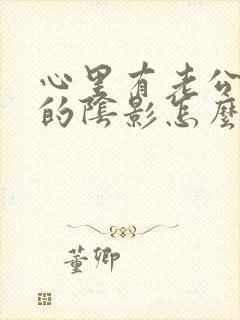 心里有老公
的陰影怎麼
董卿